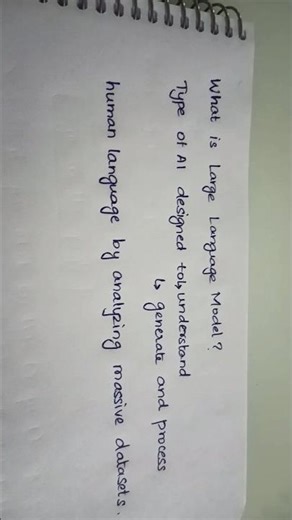 What is Large Language Model?
Type of AI designed to↳understand
↳ generate and process
human language by analyzing massive datasets.